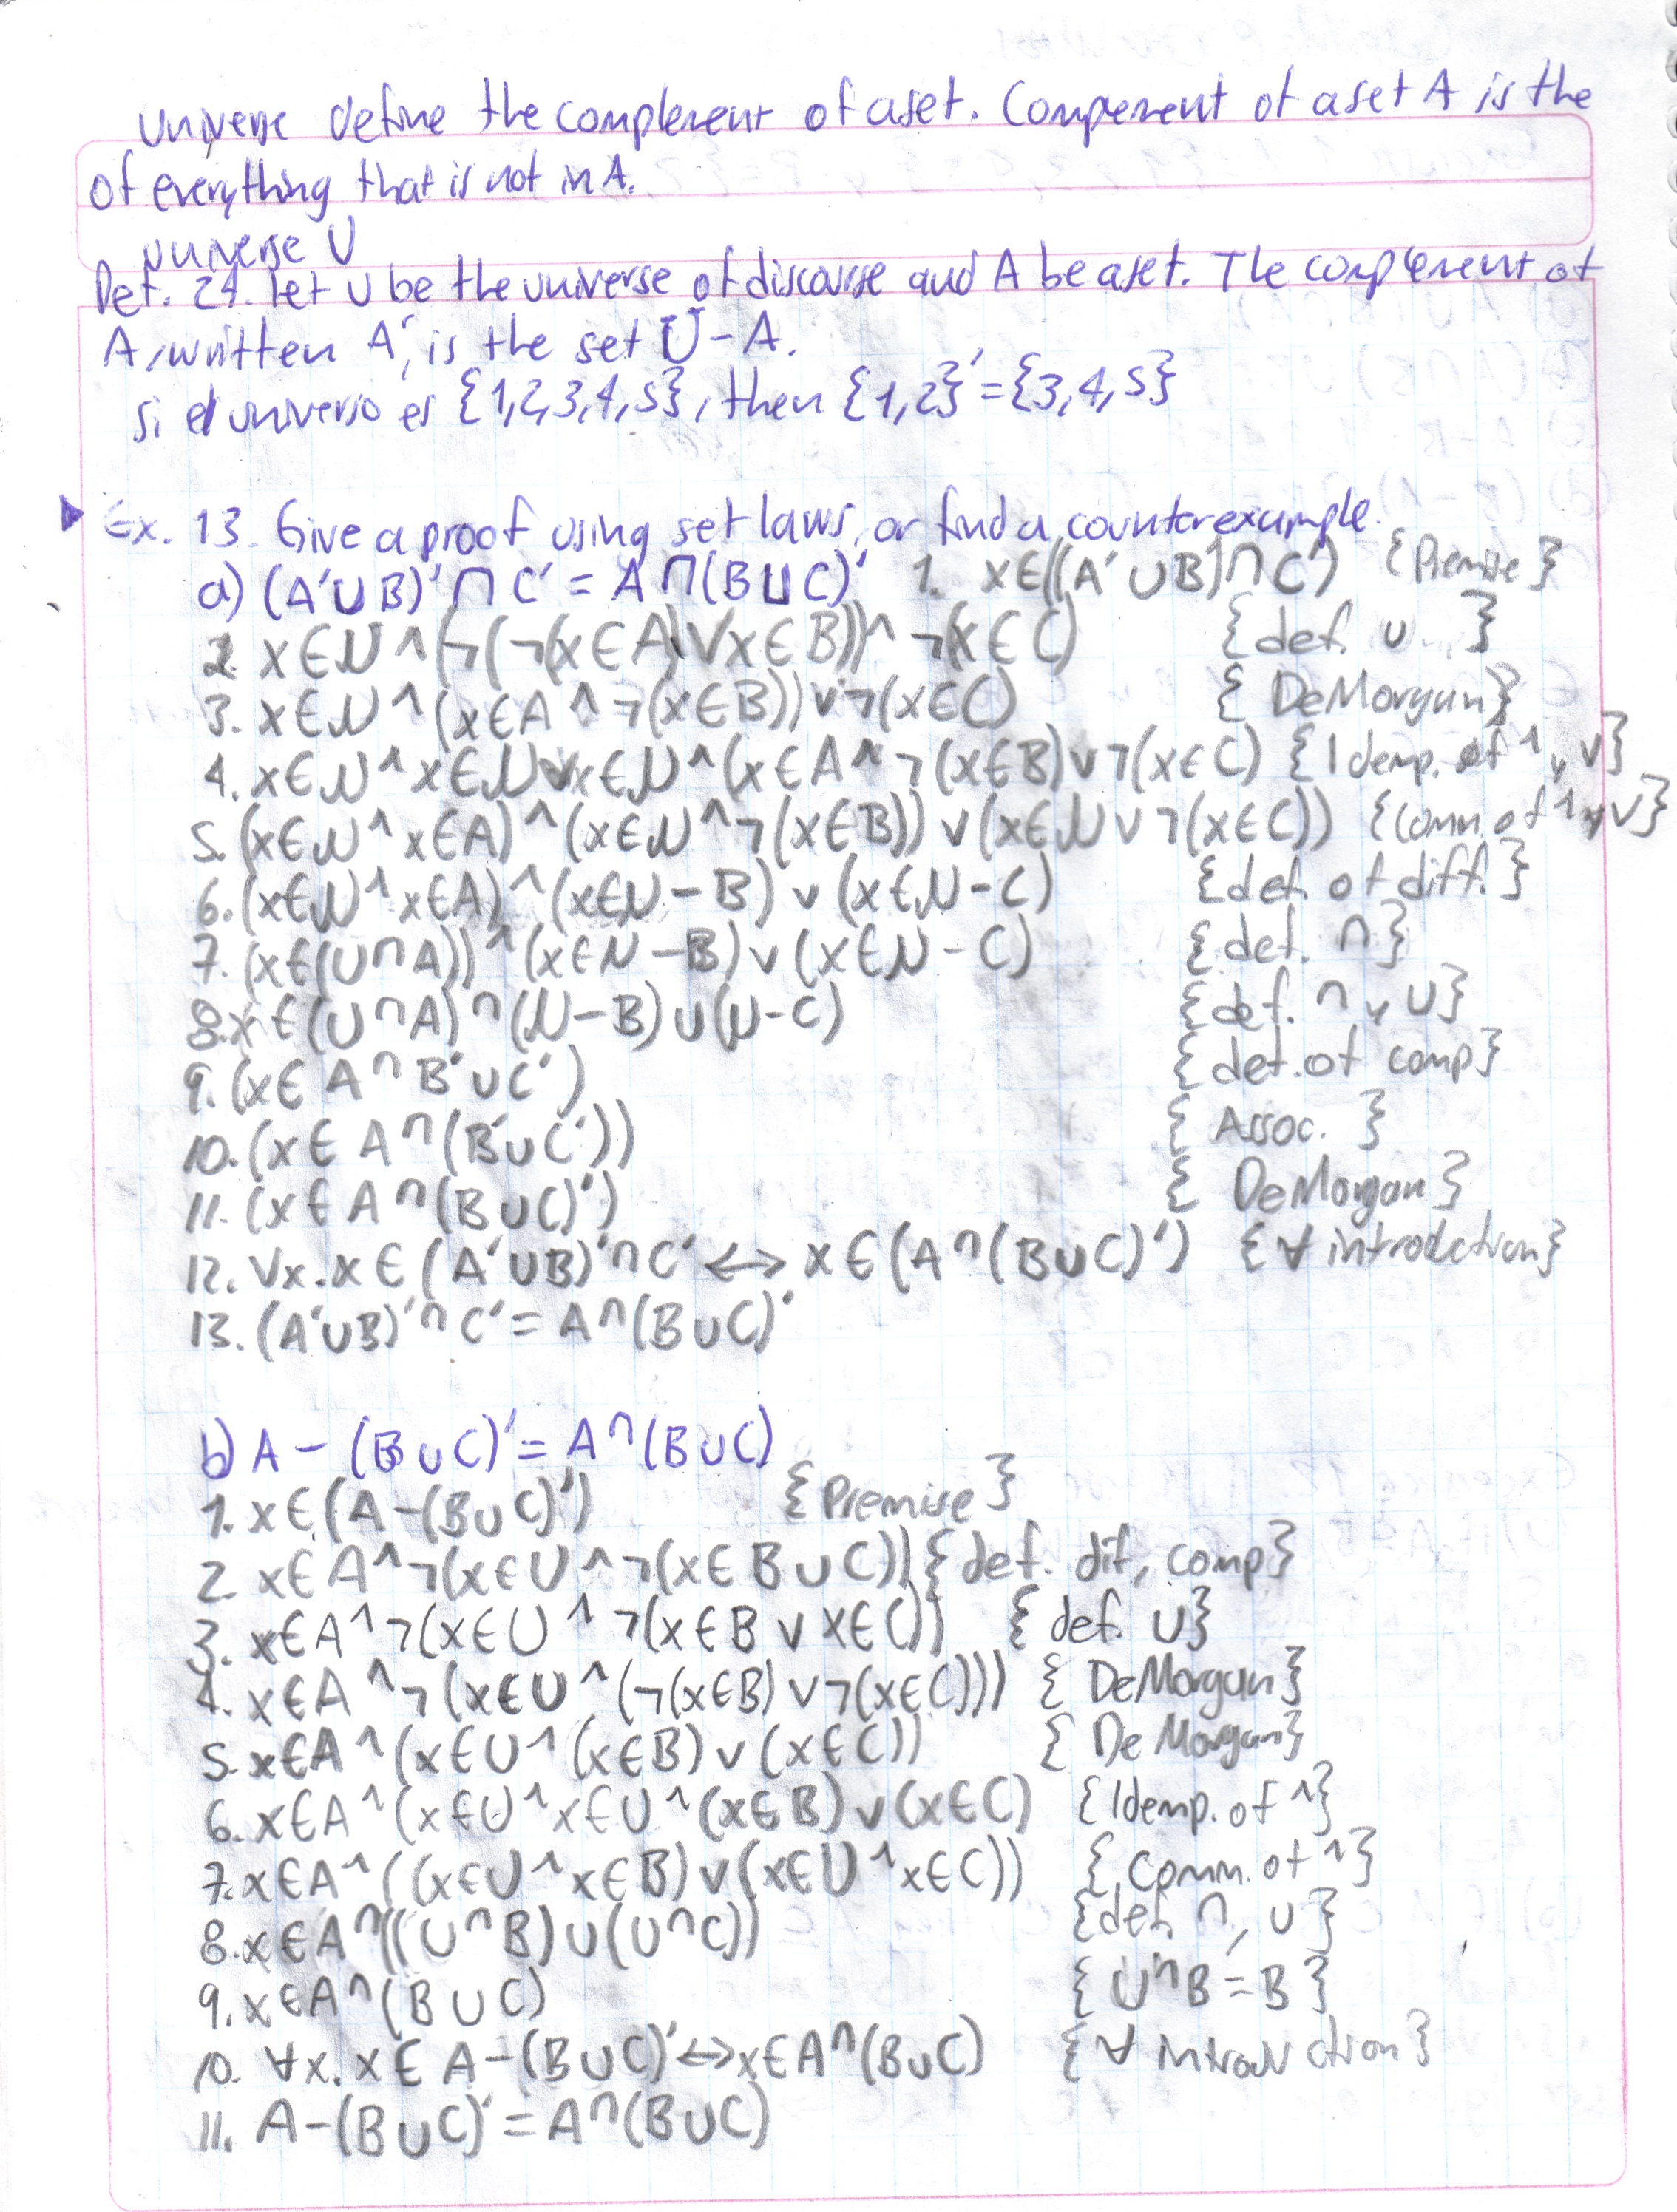 Universe define the complement of a set. Compement of a set A is the
of everything that is not in A.
universe U
Def. 24. Let U be the universe of discourse and A be a set. The complement of
A, written A', is the set U - A.
si el universo es {1,2,3,4,5}, then {1,2}' = {3,4,5}
Ex. 13. Give a proof using set laws, or find a counterexample.
a) (A'∪B)'∩C' = A∩(B∪C)' 1. x∈((A'∪B)'∩C') {Premise}
2. x∈U ∧ (¬(¬(x∈A) ∨ x∈B)) ∧ ¬(x∈C) {def. ∪ }
3. x∈U ∧ (x∈A ∧ ¬(x∈B)) ∨ ¬(x∈C) {DeMorgan}
4. x∈U ∧ x∈U ∨ x∈U ∧ (x∈A ∧ ¬(x∈B) ∨ ¬(x∈C) {Idemp. of ∧ y ∨}
5. (x∈U ∧ x∈A) ∧ (x∈U ∧ ¬(x∈B)) ∨ (x∈U ∨ ¬(x∈C)) {Comm. of ∧ y ∨}
6. (x∈U ∧ x∈A) ∧ (x∈U - B) ∨ (x∈U - C) {def. of diff.}
7. (x∈(U∩A)) ∧ (x∈U - B) ∨ (x∈U - C) {def. ∩}
8. x∈(U∩A)∩(U-B)∪(U-C) {def. ∩ y ∪}
9. (x∈A∩B'∪C') {def. of comp}
10. (x∈A∩(B'∪C')) {Assoc. }
11. (x∈A∩(B∪C)') {DeMorgan}
12. ∀x. x∈(A'∪B)'∩C' ↔ x∈(A∩(B∪C)') {∀ introdction}
13. (A'∪B)'∩C' = A∩(B∪C)'
b) A - (B∪C)' = A∩(B∪C)
1. x∈(A-(B∪C)') {Premise}
2. x∈A ∧ ¬(x∈U ∧ ¬(x∈B∪C)) {def. dif, comp}
3. x∈A ∧ ¬(x∈U ∧ ¬(x∈B ∨ x∈C)) {def. ∪}
4. x∈A ∧ ¬(x∈U ∧ (¬(x∈B) ∨ ¬(x∈C))) {DeMorgan}
5. x∈A ∧ (x∈U ∧ (x∈B) ∨ (x∈C)) {De Morgan}
6. x∈A ∧ (x∈U ∧ x∈U ∧ (x∈B) ∨ (x∈C) {Idemp. of ∧}
7. x∈A ∧ ((x∈U ∧ x∈B) ∨ (x∈U ∧ x∈C)) {Comm. of ∧}
8. x∈A∩((U∩B)∪(U∩C)) {def. ∩, ∪}
9. x∈A∩(B∪C) {U∩B = B}
10. ∀x. x∈A-(B∪C)' ↔ x∈A∩(B∪C) {∀ introduction}
11. A-(B∪C)' = A∩(B∪C)